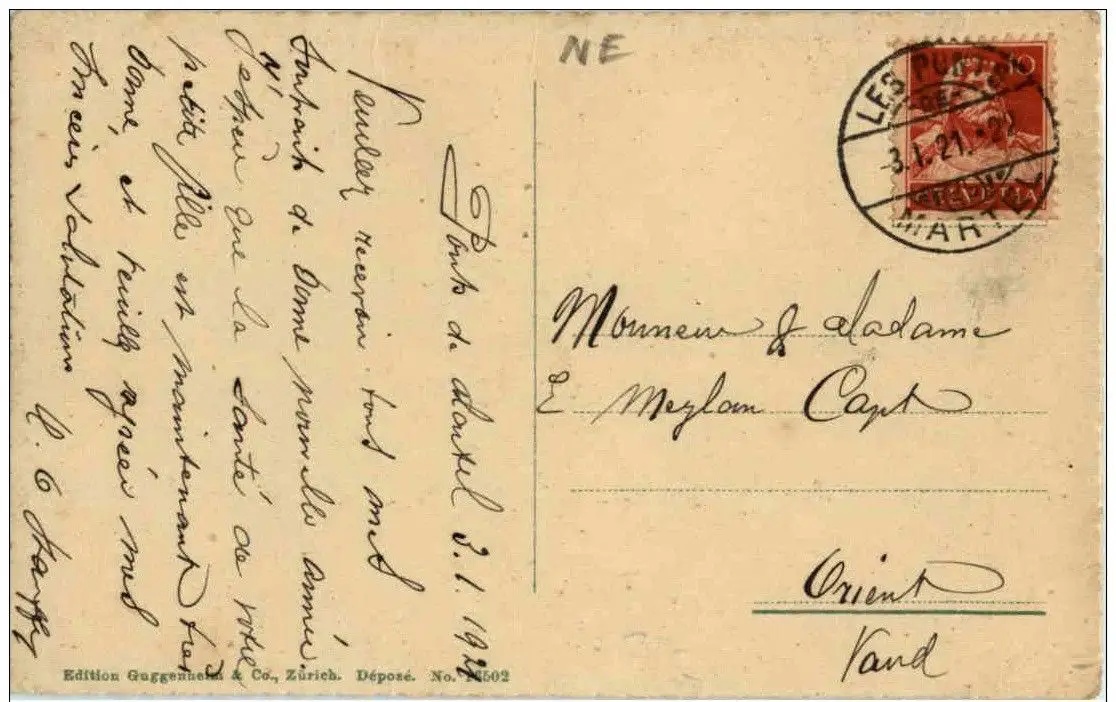 NE
LES PONTS
3.I.21.-22
MARTEL
10
HELVETIA
Ponts de Martel 3.1.1921
Veuillez recevoir tous mes
souhaits de bonne nouvelle année.
J'espère que la santé de votre
petite fille est maintenant très
bonne, et veuillez agréer mes
sincères salutations
Monsieur & Madame
E Meylan Capt
Orient
Vaud
Edition Guggenheim & Co., Zürich. Déposé. No. 502